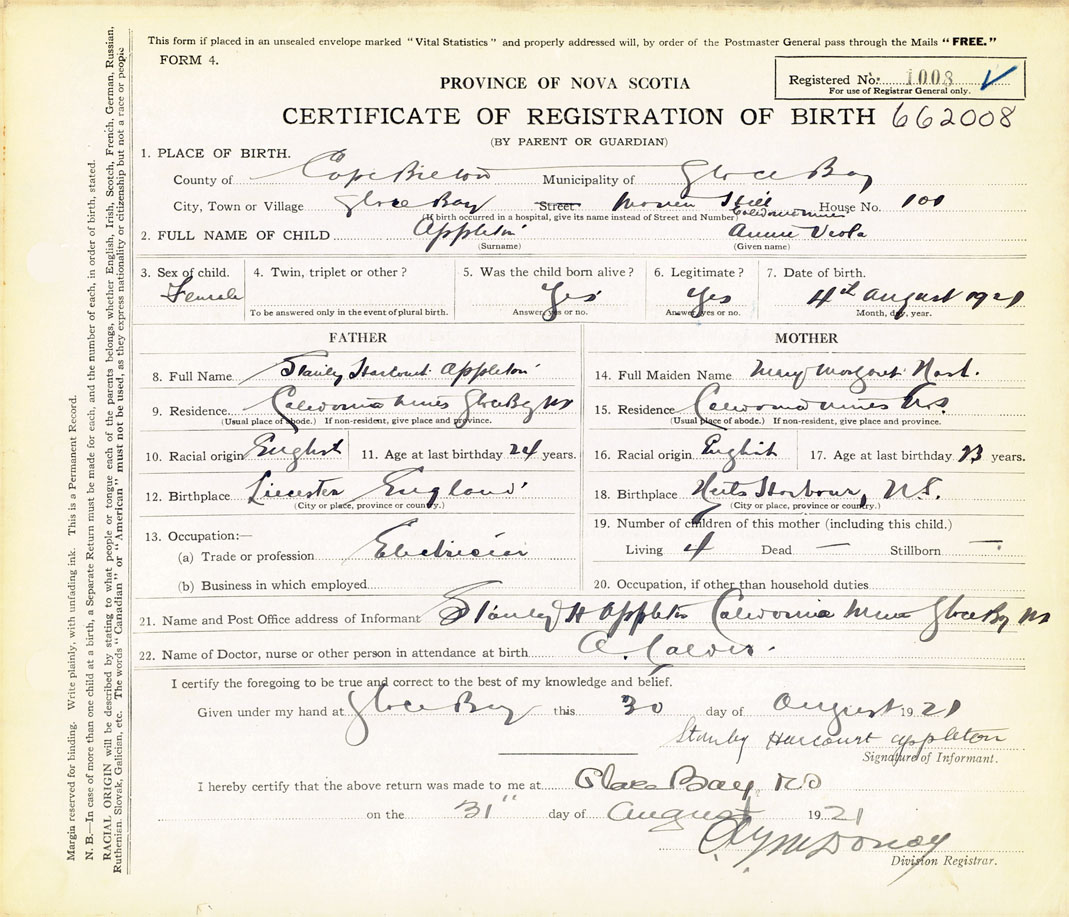 This form if placed in an unsealed envelope marked "Vital Statistics" and properly addressed will, by order of the Postmaster General pass through the Mails "FREE."
FORM 4.
Registered No. 1008 ✓
For use of Registrar General only.
PROVINCE OF NOVA SCOTIA
CERTIFICATE OF REGISTRATION OF BIRTH 662008
(BY PARENT OR GUARDIAN)
1. PLACE OF BIRTH.
County of Cape Breton Municipality of Glace Bay
City, Town or Village Glace Bay Street House No. 100
(If birth occurred in a hospital, give its name instead of Street and Number)
Caledonia Mines
2. FULL NAME OF CHILD Appleton Annie Veola
(Surname) (Given name)
3. Sex of child. 4. Twin, triplet or other? 5. Was the child born alive? 6. Legitimate? 7. Date of birth.
Female Yes Yes 4th August 1921
To be answered only in the event of plural birth. Answer, yes or no. Answer, yes or no. Month, day, year.
FATHER
8. Full Name Stanley Harcourt Appleton
9. Residence Caledonia Mines Glace Bay NS
(Usual place of abode.) If non-resident, give place and province.
10. Racial origin English 11. Age at last birthday 24 years.
12. Birthplace Liecester England
(City or place, province or country.)
13. Occupation:—
(a) Trade or profession Electrician
(b) Business in which employed
MOTHER
14. Full Maiden Name Mary Margaret
15. Residence Caledonia Mines N.S.
(Usual place of abode.) If non-resident, give place and province.
16. Racial origin English 17. Age at last birthday 23 years.
18. Birthplace Harbour, N.S.
(City or place, province or country.)
19. Number of children of this mother (including this child.)
Living 4 Dead — Stillborn —
20. Occupation, if other than household duties
21. Name and Post Office address of Informant Stanley H Appleton Caledonia Mines Glace Bay NS
22. Name of Doctor, nurse or other person in attendance at birth
I certify the foregoing to be true and correct to the best of my knowledge and belief.
Given under my hand at Glace Bay this 30 day of August 1921
Stanley Harcourt Appleton
Signature of Informant.
I hereby certify that the above return was made to me at Glace Bay, NS
on the 31" day of August 1921
Division Registrar.
Margin reserved for binding. Write plainly, with unfading ink. This is a Permanent Record.
N. B.—In case of more than one child at a birth, a Separate Return must be made for each, and the number of each, in order of birth, stated.
RACIAL ORIGIN will be described by stating to what people or tongue each of the parents belongs, whether English, Irish, Scotch, French, German, Russian,
Ruthenian, Slovak, Galician, etc. The words "Canadian" or "American" must not be used, as they express nationality or citizenship but not a race or people